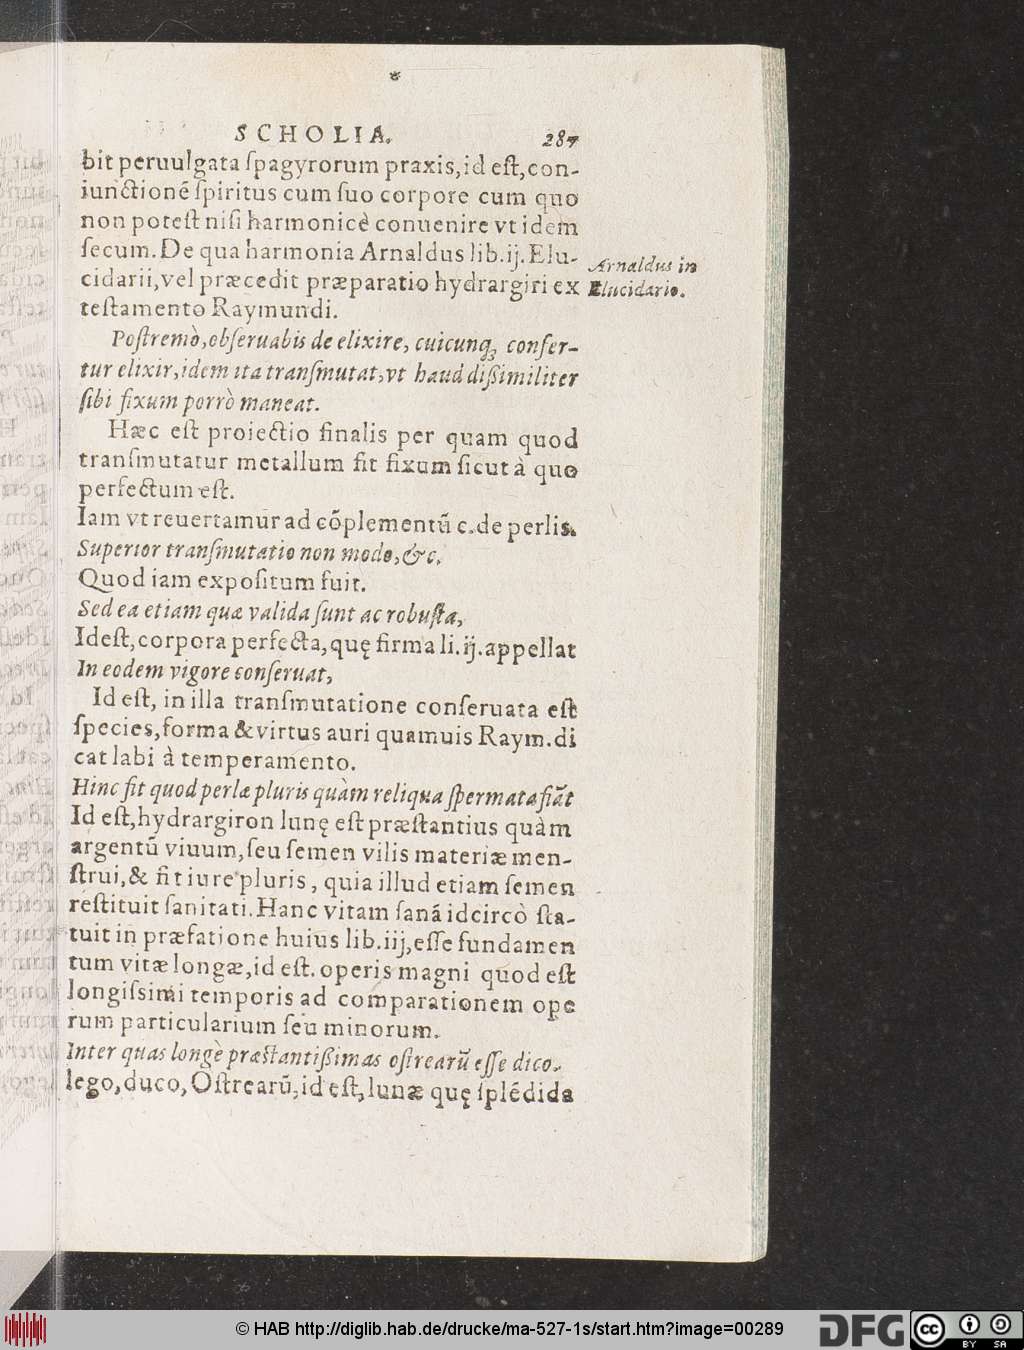 SCHOLIA. 287
bit peruulgata ſpagyrorum praxis, id eſt, con-
iunctionē ſpiritus cum ſuo corpore cum quo
non poteſt niſi harmonicè conuenire vt idem
ſecum. De qua harmonia Arnaldus lib. ij. Elu-
cidarii, vel præcedit præparatio hydrargiri ex
teſtamento Raymundi.
Arnaldus in
Elucidario.
Poſtremò, obſeruabis de elixire, cuicunq; confer-
tur elixir, idem ita tranſmutat, vt haud dißimiliter
ſibi fixum porrò maneat.
Hæc eſt proiectio finalis per quam quod
tranſmutatur metallum fit fixum ſicut à quo
perfectum eſt.
Iam vt reuertamur ad cōplementū c. de perlis.
Superior tranſmutatio non modo, &c.
Quod iam expoſitum fuit.
Sed ea etiam quæ valida ſunt ac robuſta,
Ideſt, corpora perfecta, quę firma li. ij. appellat
In eodem vigore conſeruat,
Id eſt, in illa tranſmutatione conſeruata eſt
ſpecies, forma & virtus auri quamuis Raym. di
cat labi à temperamento.
Hinc fit quod perlæ pluris quàm reliqua ſpermata fiāt
Id eſt, hydrargiron lunę eſt præſtantius quàm
argentū viuum, ſeu ſemen vilis materiæ men-
ſtrui, & fit iure pluris, quia illud etiam ſemen
reſtituit ſanitati. Hanc vitam ſanā idcircò ſta-
tuit in præfatione huius lib. iij, eſſe fundamen
tum vitæ longæ, id eſt. operis magni quod eſt
longiſsimi temporis ad comparationem ope
rum particularium ſeu minorum.
Inter quas longè præſtantißimas oſtrearū eſſe dico.
lego, duco, Oſtrearū, id eſt, lunæ quę ſplēdida
© HAB http://diglib.hab.de/drucke/ma-527-1s/start.htm?image=00289
DFG
cc BY SA